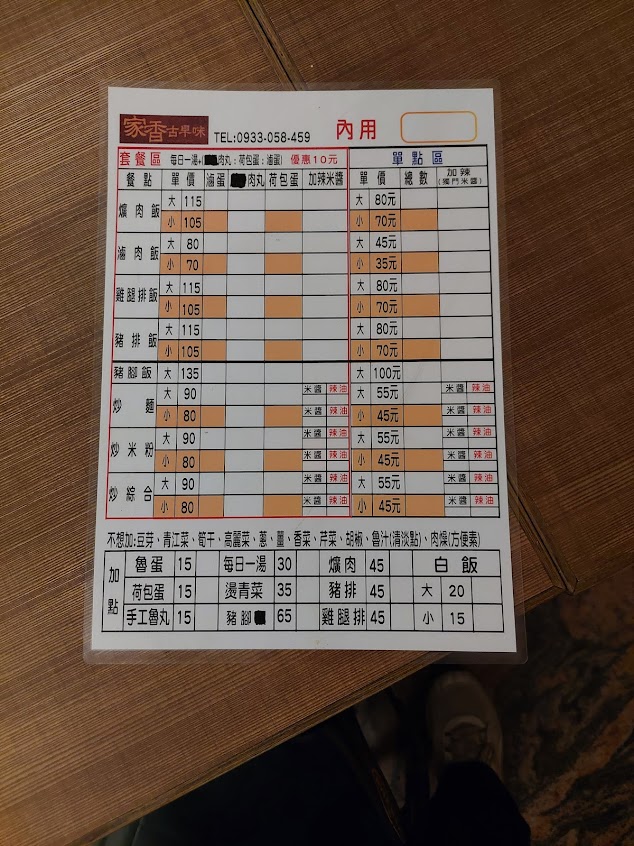 家香古早味 TEL:0933-058-459 內用
套餐區 每日一湯+(肉丸:荷包蛋:滷蛋) 優惠10元 單點區
餐點 單價 滷蛋 肉丸 荷包蛋 加辣米醬 單價 總數 加辣(獨門米醬)
爌肉飯 大 115 大 80元
小 105 小 70元
滷肉飯 大 80 大 45元
小 70 小 35元
雞腿排飯 大 115 大 80元
小 105 小 70元
豬排飯 大 115 大 80元
小 105 小 70元
豬腳飯 大 135 大 100元
炒麵 大 90 米醬 辣油 大 55元 米醬 辣油
小 80 米醬 辣油 小 45元 米醬 辣油
炒米粉 大 90 米醬 辣油 大 55元 米醬 辣油
小 80 米醬 辣油 小 45元 米醬 辣油
炒綜合 大 90 米醬 辣油 大 55元 米醬 辣油
小 80 米醬 辣油 小 45元 米醬 辣油
不想加:豆芽、青江菜、筍干、高麗菜、蔥、薑、香菜、芹菜、胡椒、魯汁(清淡點)、肉燥(方便素)
加點 魯蛋 15 每日一湯 30 爌肉 45 白飯
荷包蛋 15 燙青菜 35 豬排 45 大 20
手工魯丸 15 豬腳 65 雞腿排 45 小 15